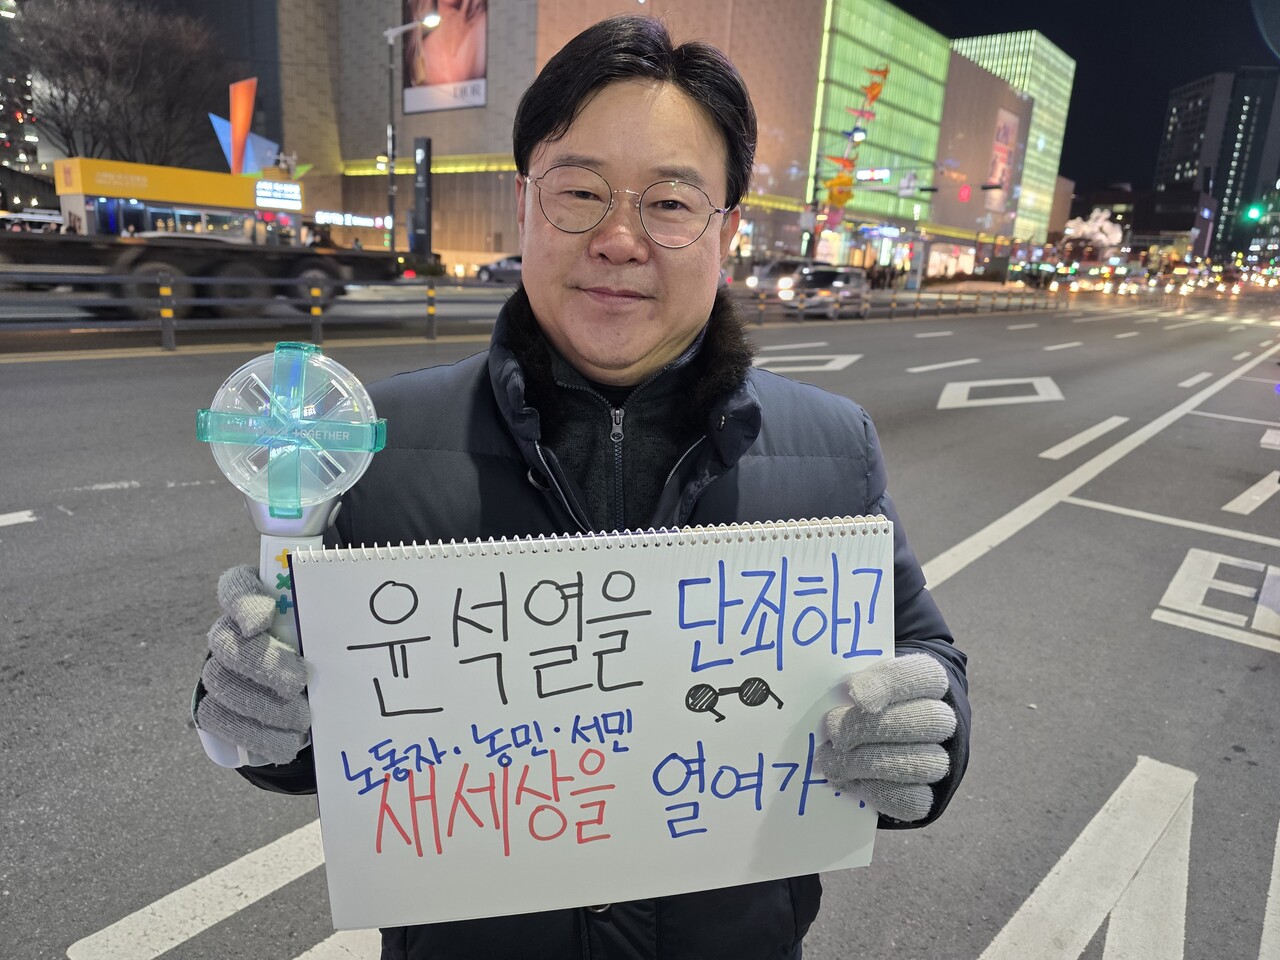 TOGETHER
윤석열을 단죄하고
노동자·농민·서민
새세상을 열여가